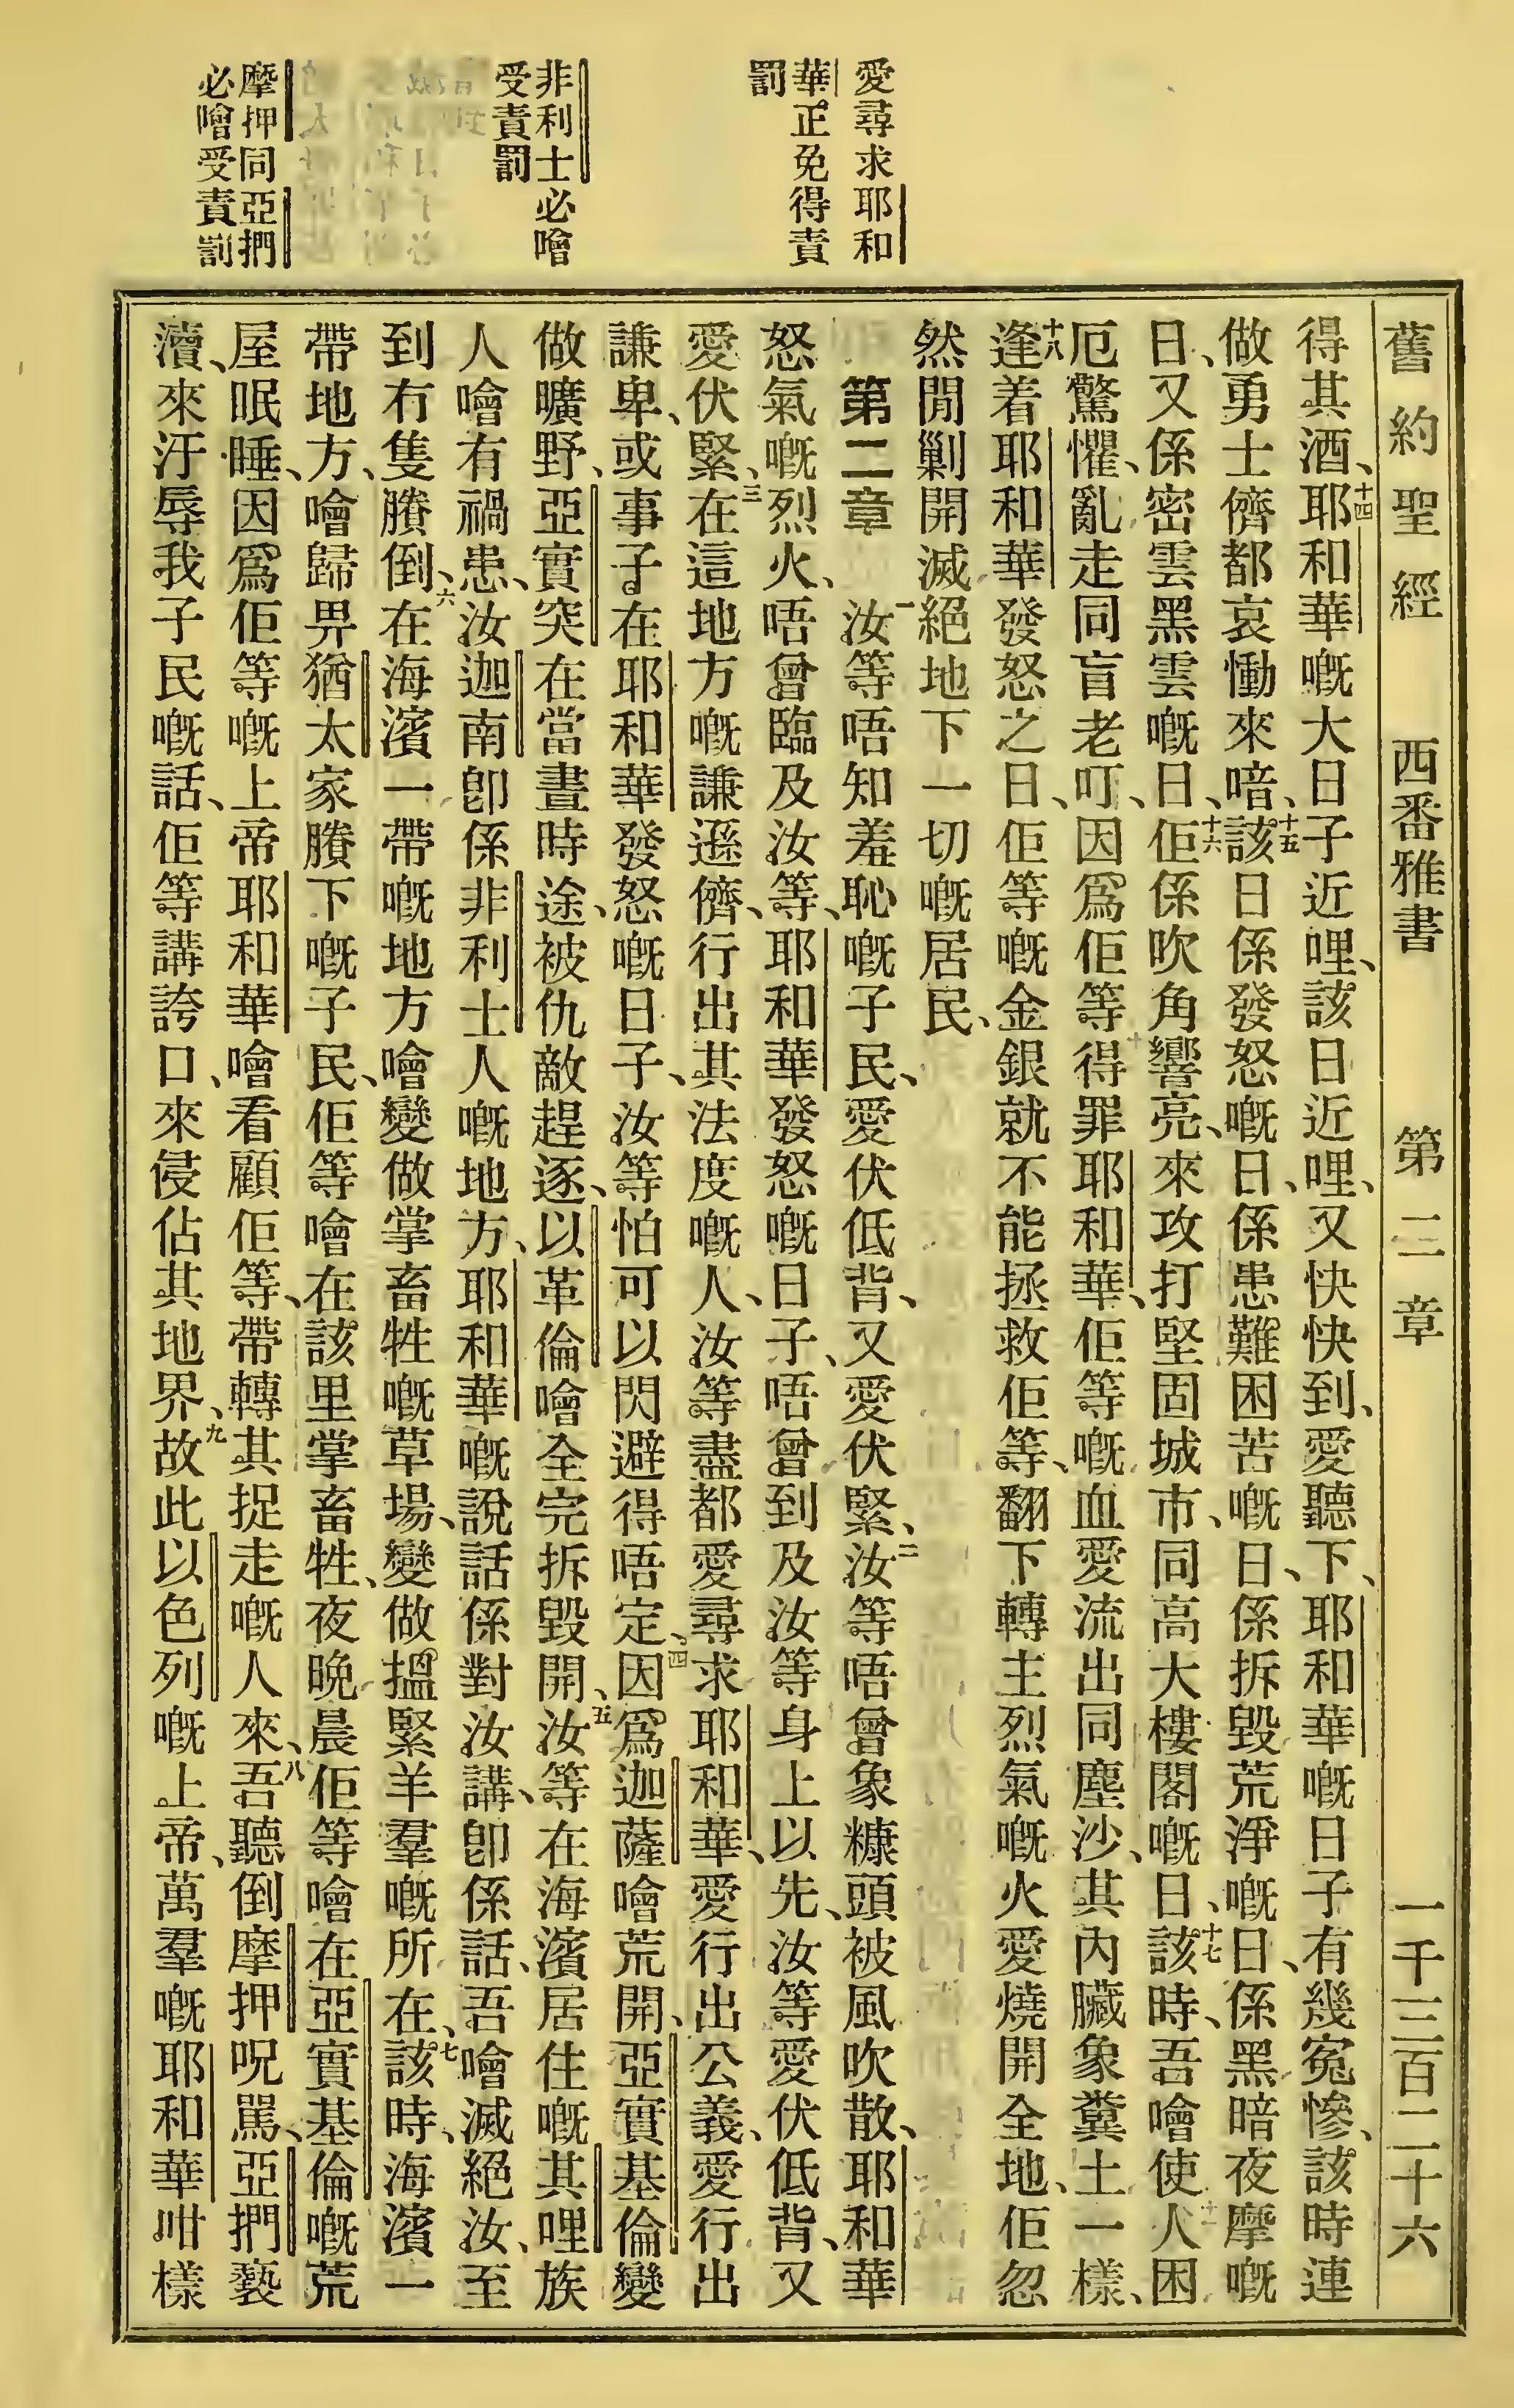 愛尋求耶和
華正免得責
罰
非利士必噲
受責罰
摩押同亞捫
必噲受責罰
舊約聖經 西番雅書 第二章 一千三百二十六
得其酒、十四耶和華嘅大日子近哩、該日近哩、又快快到、愛聽下、耶和華嘅日子有幾寃慘、該時連
做勇士儕都哀慟來喑、十五該日係發怒嘅日、係患難困苦嘅日、係拆毀荒淨嘅日、係黑暗夜摩嘅
日、又係密雲黑雲嘅日、十六佢係吹角響亮、來攻打堅固城市、同高大樓閣嘅日、十七該時、吾噲使人困
厄驚懼、亂走同盲老叮、因爲佢等得罪耶和華、佢等嘅血愛流出同塵沙、其內臟象糞土一樣、
十八逢着耶和華發怒之日、佢等嘅金銀就不能拯救佢等、翻下轉主烈氣嘅火愛燒開全地、佢忽
然閒剿開滅絕地下一切嘅居民、
第二章 一汝等唔知羞恥嘅子民、愛伏低背、又愛伏緊、二汝等唔曾象糠頭被風吹散、耶和華
怒氣嘅烈火、唔曾臨及汝等、耶和華發怒嘅日子、唔曾到及汝等身上以先、汝等愛伏低背、又
愛伏緊、三在這地方嘅謙遜儕、行出其法度嘅人、汝等盡都愛尋求耶和華、愛行出公義、愛行出
謙卑、或事子在耶和華發怒嘅日子、汝等怕可以閃避得唔定、四因爲迦薩噲荒開、亞實基倫變
做曠野、亞實突在當晝時途、被仇敵趕逐、以革倫噲全完拆毀開、五汝等在海濱居住嘅其哩族
人噲有禍患、汝迦南卽係非利士人嘅地方、耶和華嘅說話係對汝講、卽係話、吾噲滅絕汝、至
到冇隻賸倒、六在海濱一帶嘅地方噲變做掌畜牲嘅草場、變做揾緊羊羣嘅所在、七該時、海濱一
帶地方、噲歸畀猶太家賸下嘅子民、佢等噲在該里掌畜牲、夜晚晨佢等噲在亞實基倫嘅荒
屋眠睡、因爲佢等嘅上帝耶和華噲看顧佢等、帶轉其捉走嘅人來、八吾聽倒摩押呪駡、亞捫褻
瀆、來汙辱我子民嘅話、佢等講誇口、來侵佔其地界、九故此以色列嘅上帝、萬羣嘅耶和華咁樣